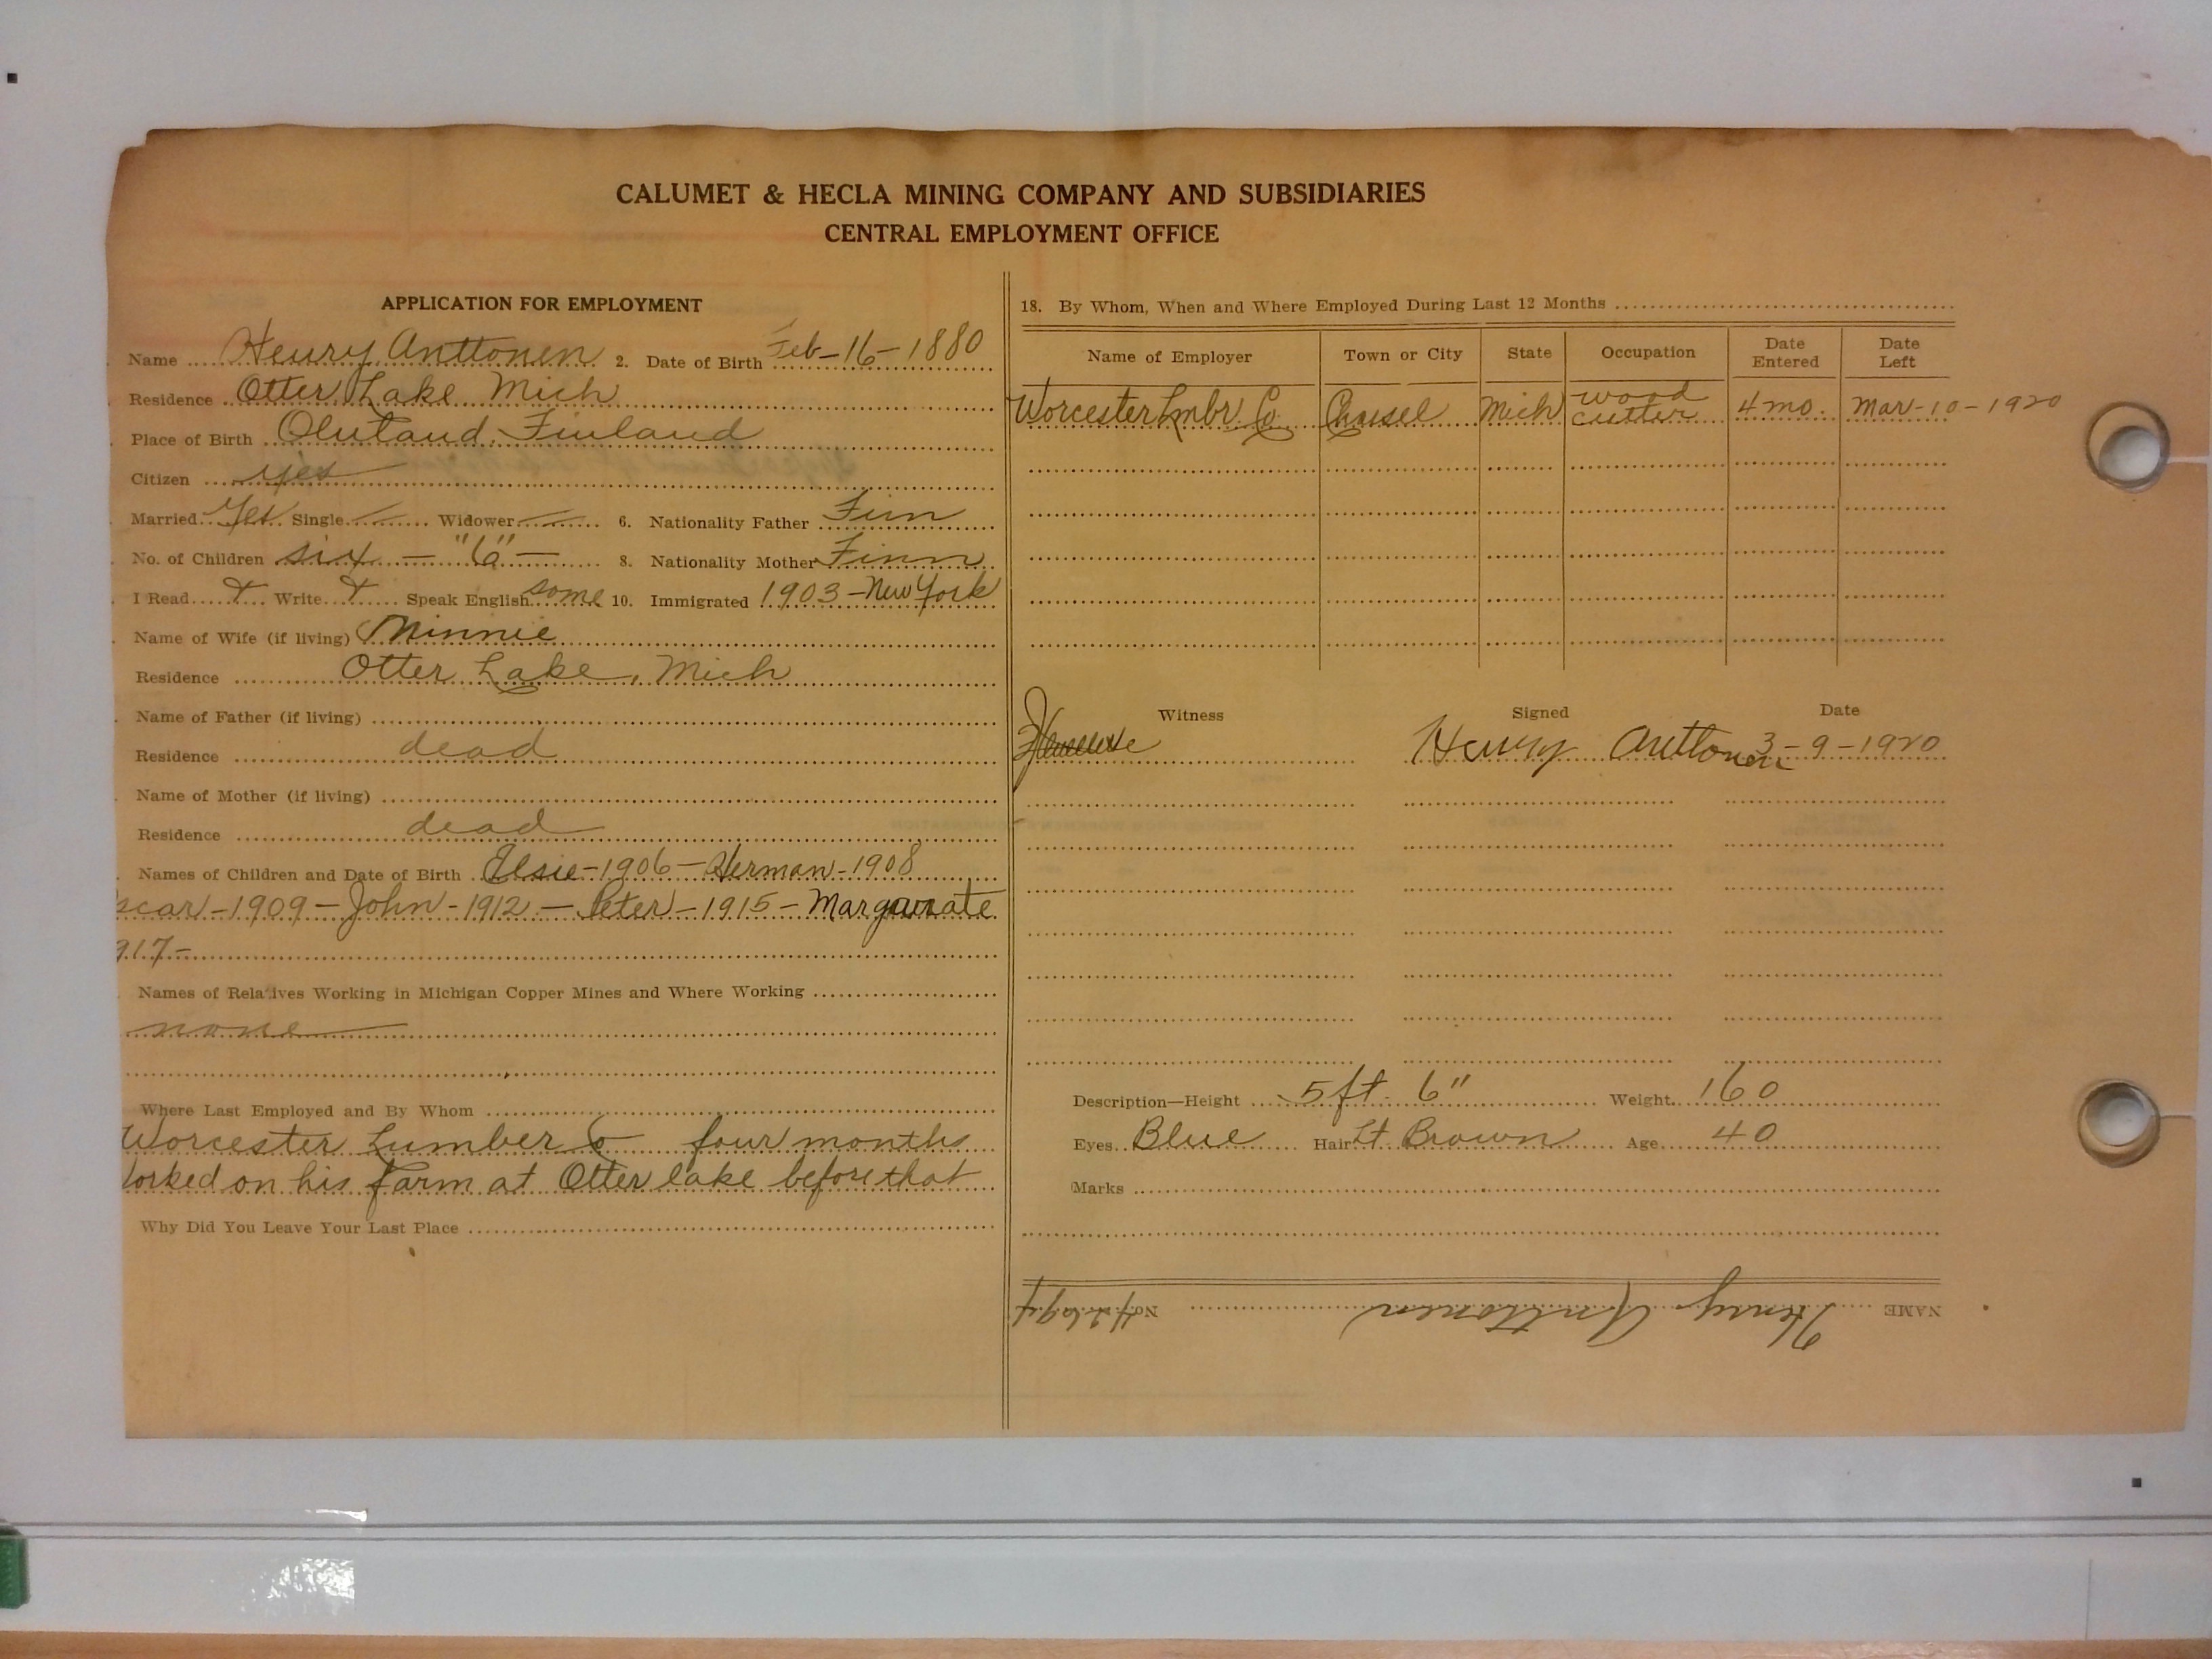 CALUMET & HECLA MINING COMPANY AND SUBSIDIARIES
CENTRAL EMPLOYMENT OFFICE
APPLICATION FOR EMPLOYMENT
Name Henry Anttonen 2. Date of Birth Feb-16-1880
Residence Otter Lake Mich
Place of Birth Finland
Citizen yes
Married Yes Single Widower 6. Nationality Father Finn
No. of Children six - "6" - 8. Nationality Mother Finn
I Read Write Speak English some 10. Immigrated 1903-New York
Name of Wife (if living) Minnie
Residence Otter Lake, Mich
Name of Father (if living)
Residence dead
Name of Mother (if living)
Residence dead
Names of Children and Date of Birth Elsie-1906-Herman-1908
scar-1909-John-1912-Peter-1915-Margurate
917-
Names of Relatives Working in Michigan Copper Mines and Where Working
none
Where Last Employed and By Whom
Worcester Lumber Co four months
orked on his farm at Otter lake before that
Why Did You Leave Your Last Place
18. By Whom, When and Where Employed During Last 12 Months
Name of Employer Town or City State Occupation Date Entered Date Left
Worcester Lmbr. Co. Chassel Mich wood cutter 4 mo. Mar-10-1920
Witness Signed Date
Henry Anttonen 3-9-1920
Description—Height 5 ft 6" Weight 160
Eyes Blue Hair Lt Brown Age 40
Marks
NAME Henry Anttonen No.